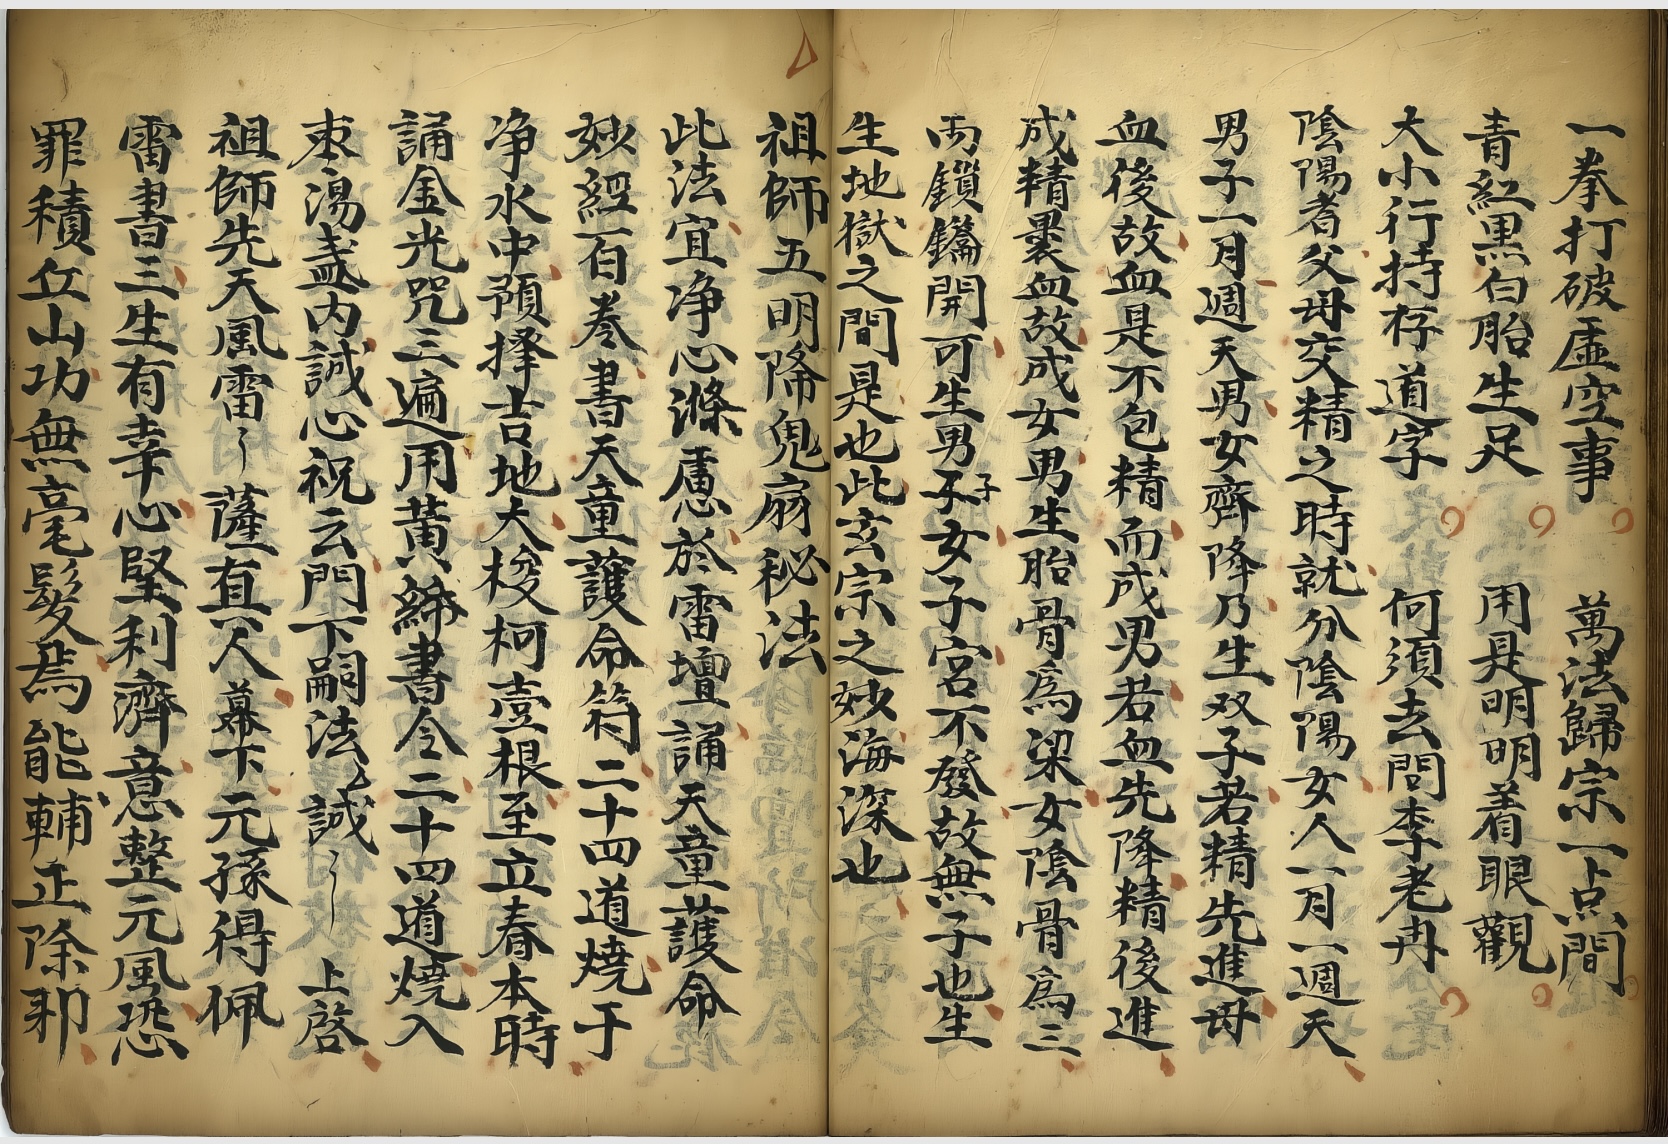 一拳打破虛空事　萬法歸宗一点間
青紅黑白胎生足　用是明明着眼觀
大小行持存道字　何須去問李老冉
陰陽者父母交精之時就分陰陽女人一月一週天
男子一月週天男女齊降乃生双子若精先進母
血後故血是不包精而成男若血先降精後進
成精裹血故成女男生胎骨爲梁女陰骨爲三
両鎖鑰開可生男子子女子宮不發故無子也生
生地獄之間是也此玄宗之妙海深也
祖師五明降鬼扇秘法
此法宜净心滌慮於雷壇誦天童護命
妙經一百卷書天童護命符二十四道燒于
净水中預擇吉地大梭柯壹根至立春本時
誦金光咒三遍用黃綈書令二十四道燒入
枣湯盞内誠心祝云門下嗣法〻誠〻　上啓
祖師先天風雷〻薩真人幕下元孫得佩
雷書三生有幸心堅利濟意整元風恐
罪積丘山功無毫髮焉能輔正除邪